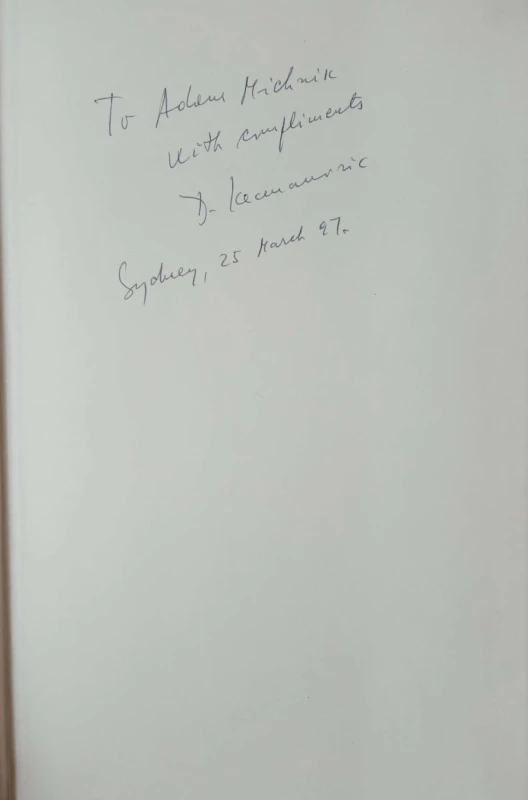 To Adam Michnik
with compliments
D. Kecmanovic
Sydney, 25 March 97.